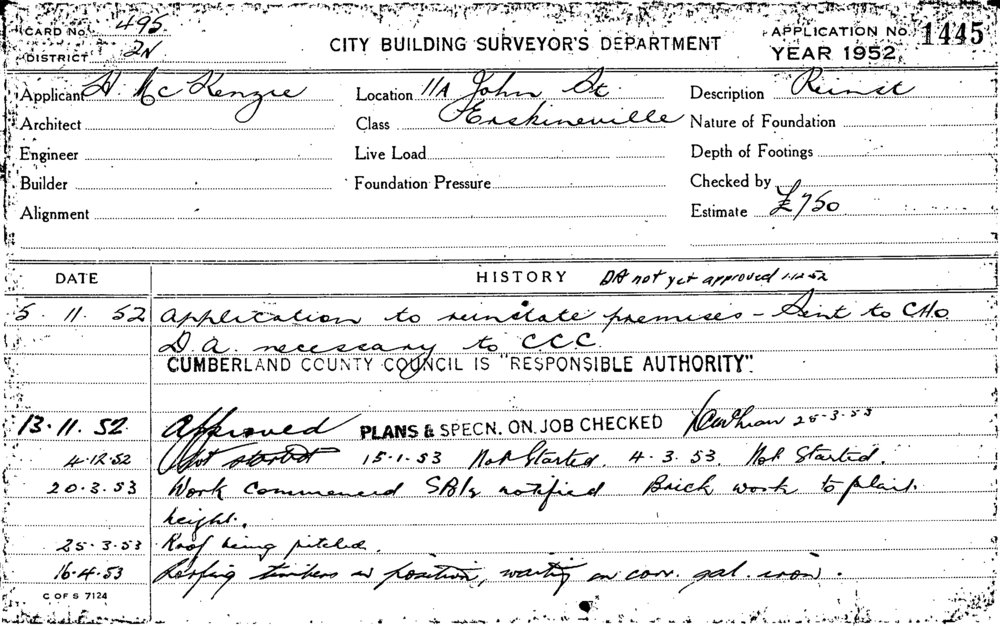 CARD No. 495
DISTRICT 2N
CITY BUILDING SURVEYOR'S DEPARTMENT
APPLICATION No. 1445
YEAR 1952
Applicant H. McKenzie Location 11A John St. Description Reinst
Architect Class Erskineville Nature of Foundation
Engineer Live Load Depth of Footings
Builder Foundation Pressure Checked by
Alignment Estimate £750
DATE HISTORY DA not yet approved 1.12.52
5. 11. 52 Application to reinstate premises - Sent to CHO
D.A. necessary to CCC.
CUMBERLAND COUNTY COUNCIL IS "RESPONSIBLE AUTHORITY".
13.11.52 Approved PLANS & SPECN. ON JOB CHECKED 25-3-53
4.12.52 Not started 15.1.53 Not Started. 4.3.53. Not Started.
20.3.53 Work commenced notified Brick work to plate
height.
25.3.53 Roof being pitched.
16.4.53 Roofing timbers in position, waiting on corr. gal. iron.
C OF S 7124